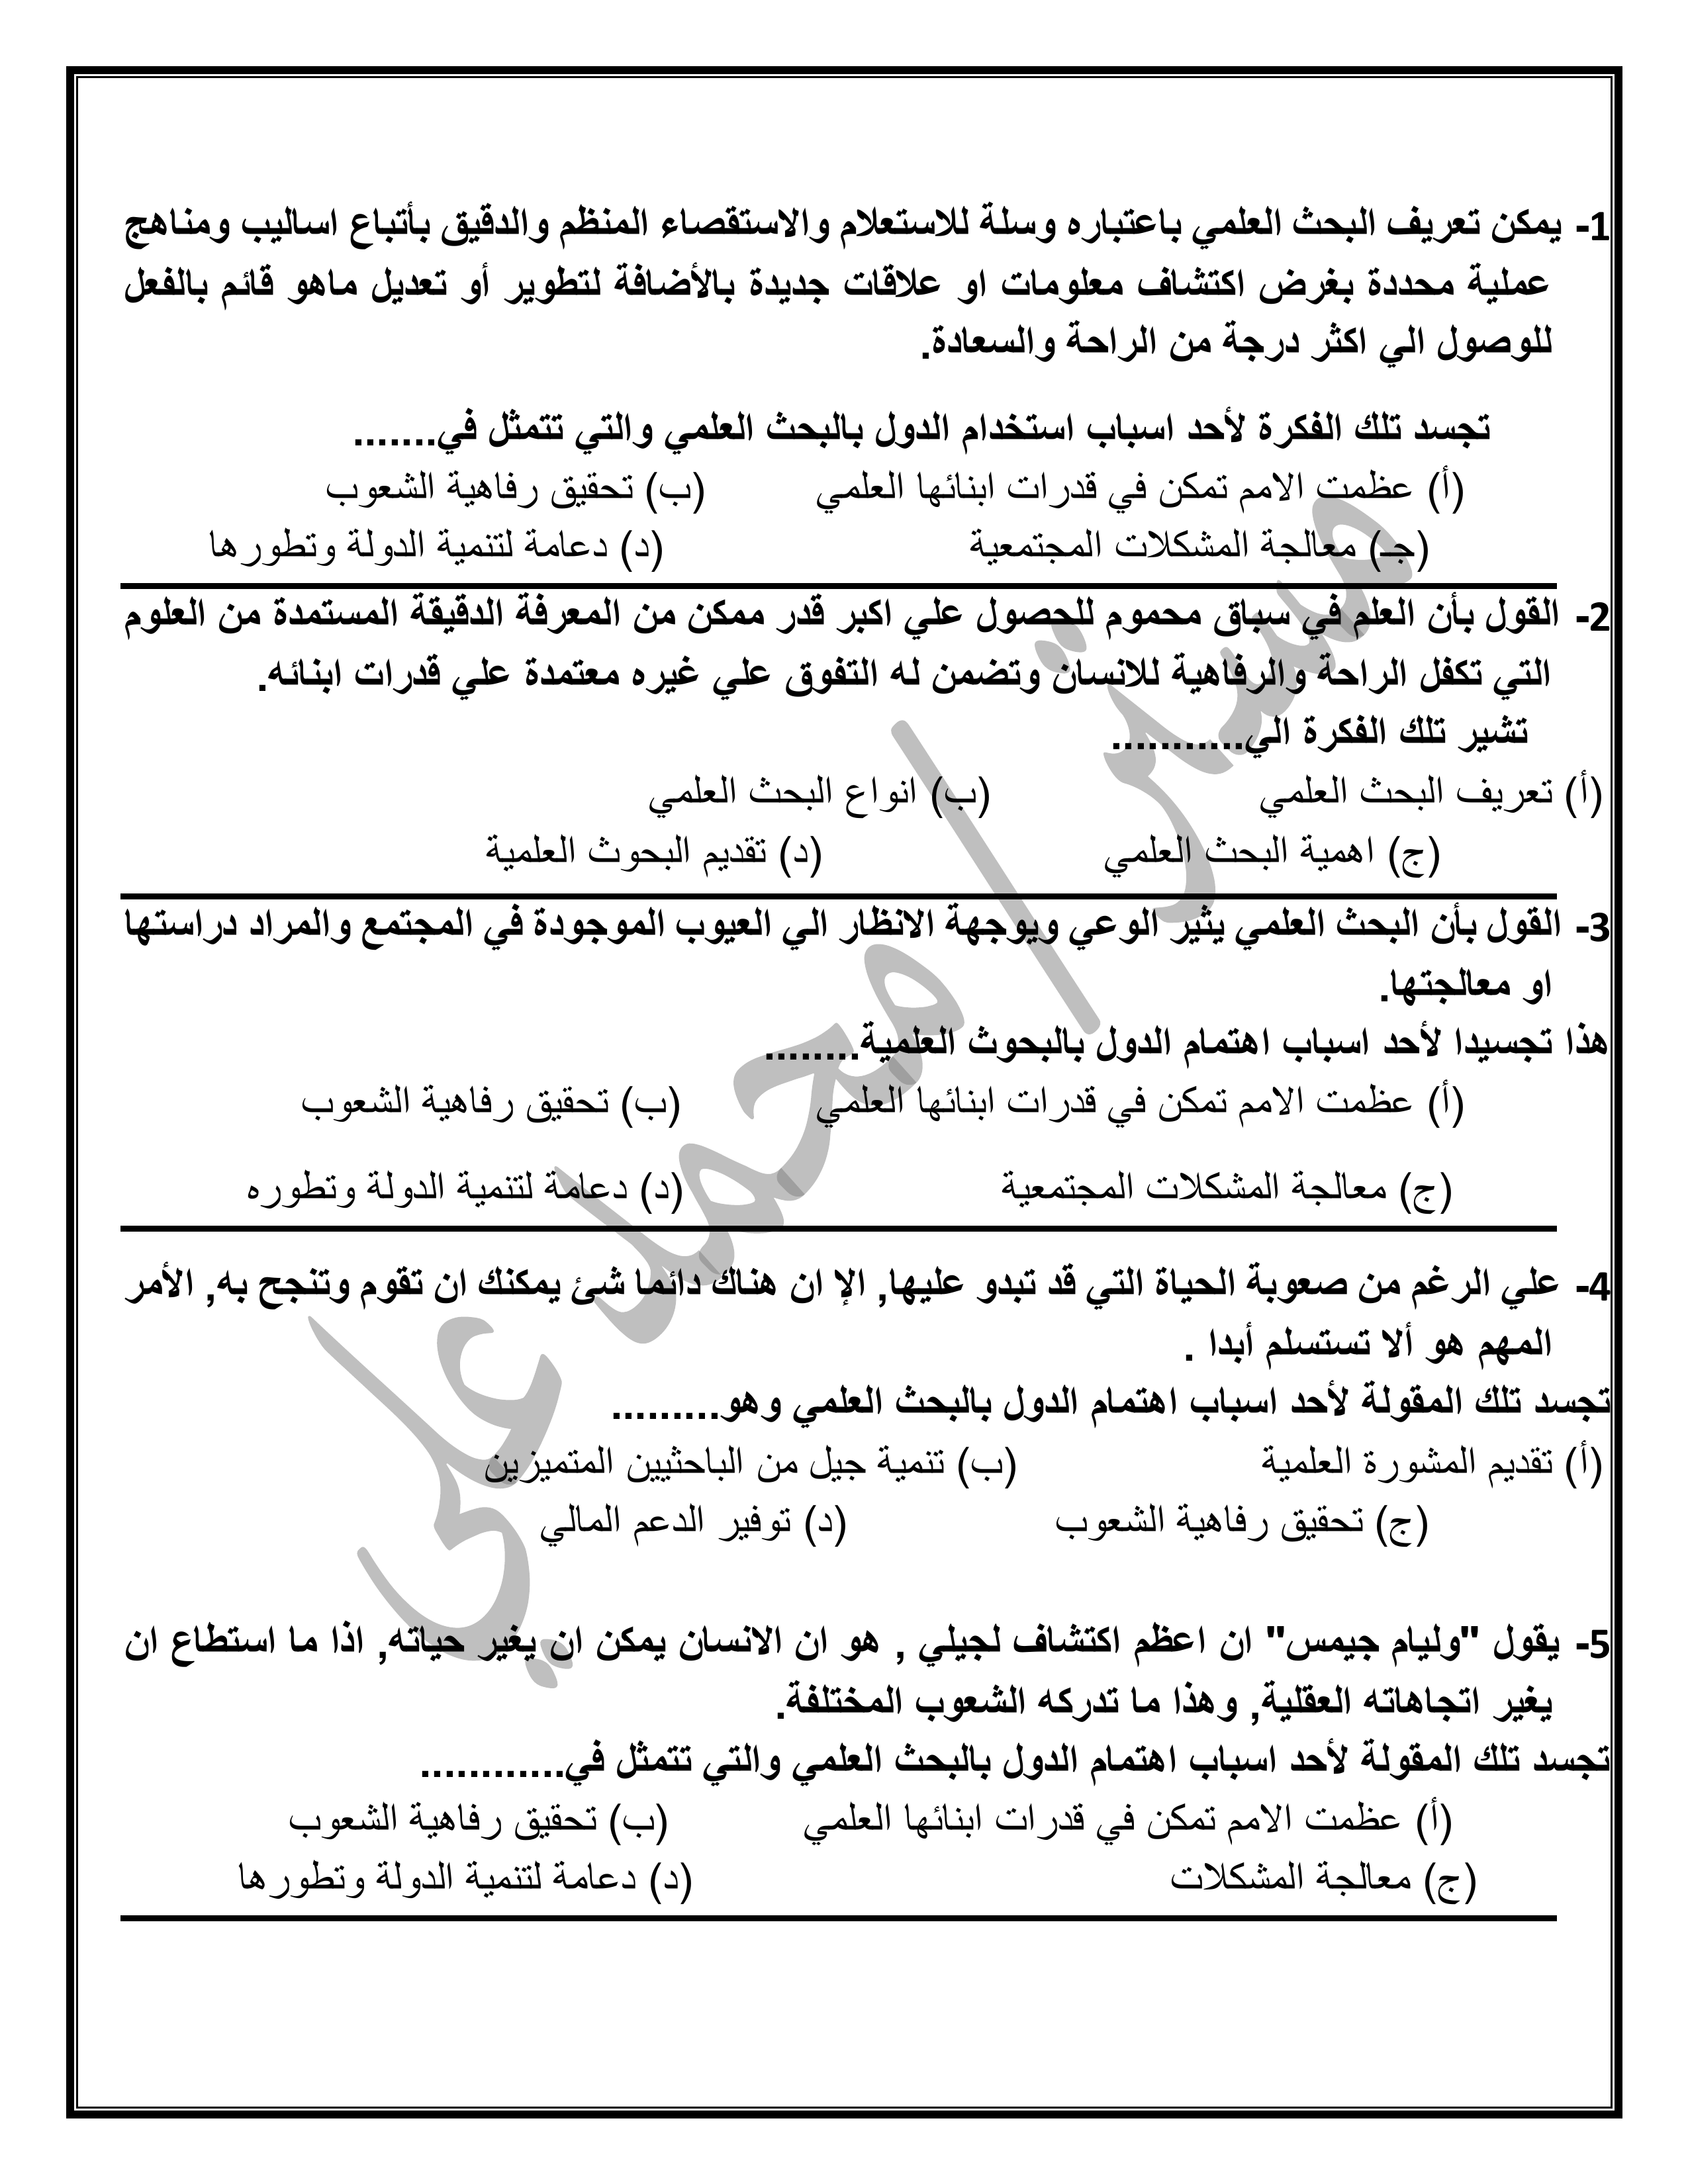 1- يمكن تعريف البحث العلمي باعتباره وسلة للاستعلام والاستقصاء المنظم والدقيق بأتباع اساليب ومناهج
عملية محددة بغرض اكتشاف معلومات او علاقات جديدة بالأضافة لتطوير أو تعديل ماهو قائم بالفعل
للوصول الي اكثر درجة من الراحة والسعادة.
تجسد تلك الفكرة لأحد اسباب استخدام الدول بالبحث العلمي والتي تتمثل في.......
(أ) عظمت الامم تمكن في قدرات ابنائها العلمي (ب) تحقيق رفاهية الشعوب
(جـ) معالجة المشكلات المجتمعية (د) دعامة لتنمية الدولة وتطورها
2- القول بأن العلم في سباق محموم للحصول علي اكبر قدر ممكن من المعرفة الدقيقة المستمدة من العلوم
التي تكفل الراحة والرفاهية للانسان وتضمن له التفوق علي غيره معتمدة علي قدرات ابنائه.
تشير تلك الفكرة الي...........
(أ) تعريف البحث العلمي (ب) انواع البحث العلمي
(ج) اهمية البحث العلمي (د) تقديم البحوث العلمية
3- القول بأن البحث العلمي يثير الوعي ويوجهة الانظار الي العيوب الموجودة في المجتمع والمراد دراستها
او معالجتها.
هذا تجسيدا لأحد اسباب اهتمام الدول بالبحوث العلمية........
(أ) عظمت الامم تمكن في قدرات ابنائها العلمي (ب) تحقيق رفاهية الشعوب
(ج) معالجة المشكلات المجتمعية (د) دعامة لتنمية الدولة وتطوره
4- علي الرغم من صعوبة الحياة التي قد تبدو عليها, الإ ان هناك دائما شئ يمكنك ان تقوم وتنجح به, الأمر
المهم هو ألا تستسلم أبدا .
تجسد تلك المقولة لأحد اسباب اهتمام الدول بالبحث العلمي وهو.........
(أ) تقديم المشورة العلمية (ب) تنمية جيل من الباحثيين المتميزين
(ج) تحقيق رفاهية الشعوب (د) توفير الدعم المالي
5- يقول "وليام جيمس" ان اعظم اكتشاف لجيلي , هو ان الانسان يمكن ان يغير حياته, اذا ما استطاع ان
يغير اتجاهاته العقلية, وهذا ما تدركه الشعوب المختلفة.
تجسد تلك المقولة لأحد اسباب اهتمام الدول بالبحث العلمي والتي تتمثل في............
(أ) عظمت الامم تمكن في قدرات ابنائها العلمي (ب) تحقيق رفاهية الشعوب
(ج) معالجة المشكلات (د) دعامة لتنمية الدولة وتطورها
مستر/محمد علي